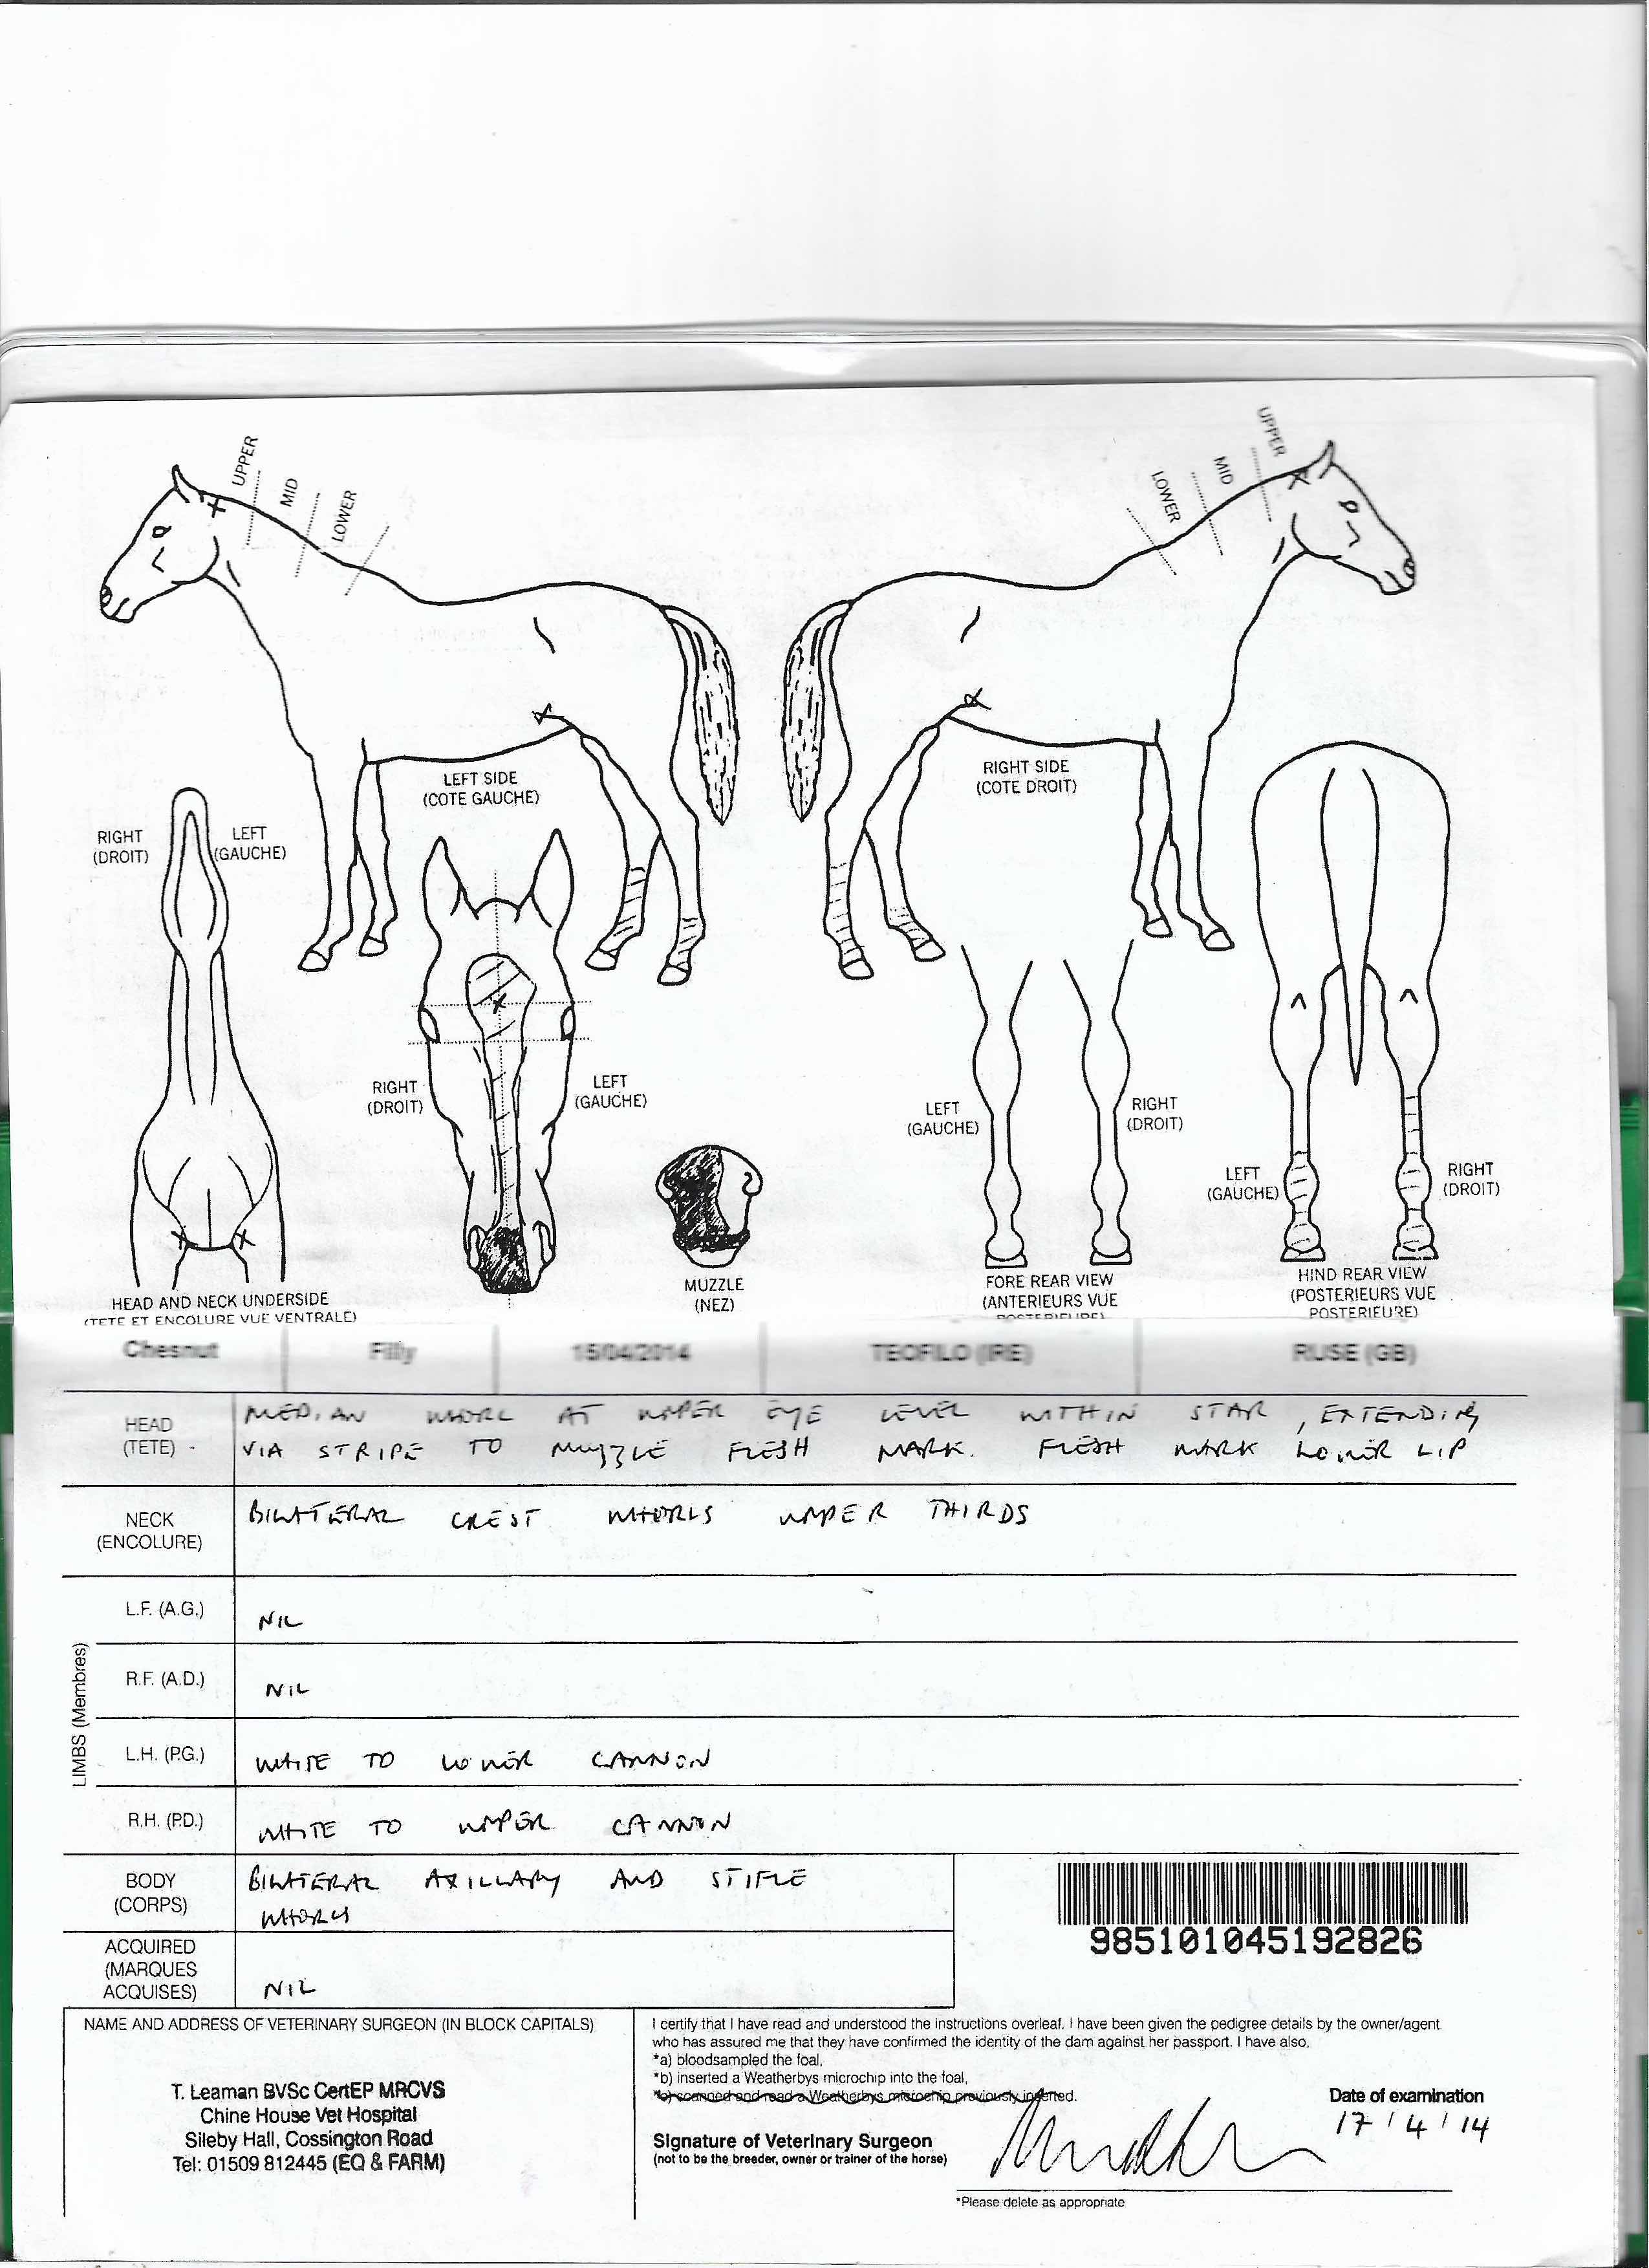 UPPER
MID
LOWER
UPPER
MID
LOWER
LEFT SIDE
(COTE GAUCHE)
RIGHT SIDE
(COTE DROIT)
RIGHT
(DROIT)
LEFT
(GAUCHE)
RIGHT
(DROIT)
LEFT
(GAUCHE)
LEFT
(GAUCHE)
RIGHT
(DROIT)
LEFT
(GAUCHE)
RIGHT
(DROIT)
HEAD AND NECK UNDERSIDE
(TETE ET ENCOLURE VUE VENTRALE)
MUZZLE
(NEZ)
FORE REAR VIEW
(ANTERIEURS VUE
POSTERIEURE)
HIND REAR VIEW
(POSTERIEURS VUE
POSTERIEURE)
Chesnut Filly 15/04/2014 TEOFILO (IRE) RUSE (GB)
HEAD
(TETE)
MEDIAN WHORL AT UPPER EYE LEVEL WITHIN STAR, EXTENDING
VIA STRIPE TO MUZZLE FLESH MARK. FLESH MARK LOWER LIP
NECK
(ENCOLURE)
BILATERAL CREST WHORLS UPPER THIRDS
LIMBS (Membres)
L.F. (A.G.) NIL
R.F. (A.D.) NIL
L.H. (P.G.) WHITE TO LOWER CANNON
R.H. (P.D.) WHITE TO UPPER CANNON
BODY
(CORPS)
BILATERAL AXILLARY AND STIFLE
WHORLS
985101045192826
ACQUIRED
(MARQUES
ACQUISES)
NIL
NAME AND ADDRESS OF VETERINARY SURGEON (IN BLOCK CAPITALS)
T. Leaman BVSc CertEP MRCVS
Chine House Vet Hospital
Sileby Hall, Cossington Road
Tel: 01509 812445 (EQ & FARM)
I certify that I have read and understood the instructions overleaf. I have been given the pedigree details by the owner/agent
who has assured me that they have confirmed the identity of the dam against her passport. I have also,
*a) bloodsampled the foal,
*b) inserted a Weatherbys microchip into the foal,
*c) scanned and read a Weatherbys microchip previously inserted.
Date of examination
17/4/14
Signature of Veterinary Surgeon
(not to be the breeder, owner or trainer of the horse)
*Please delete as appropriate